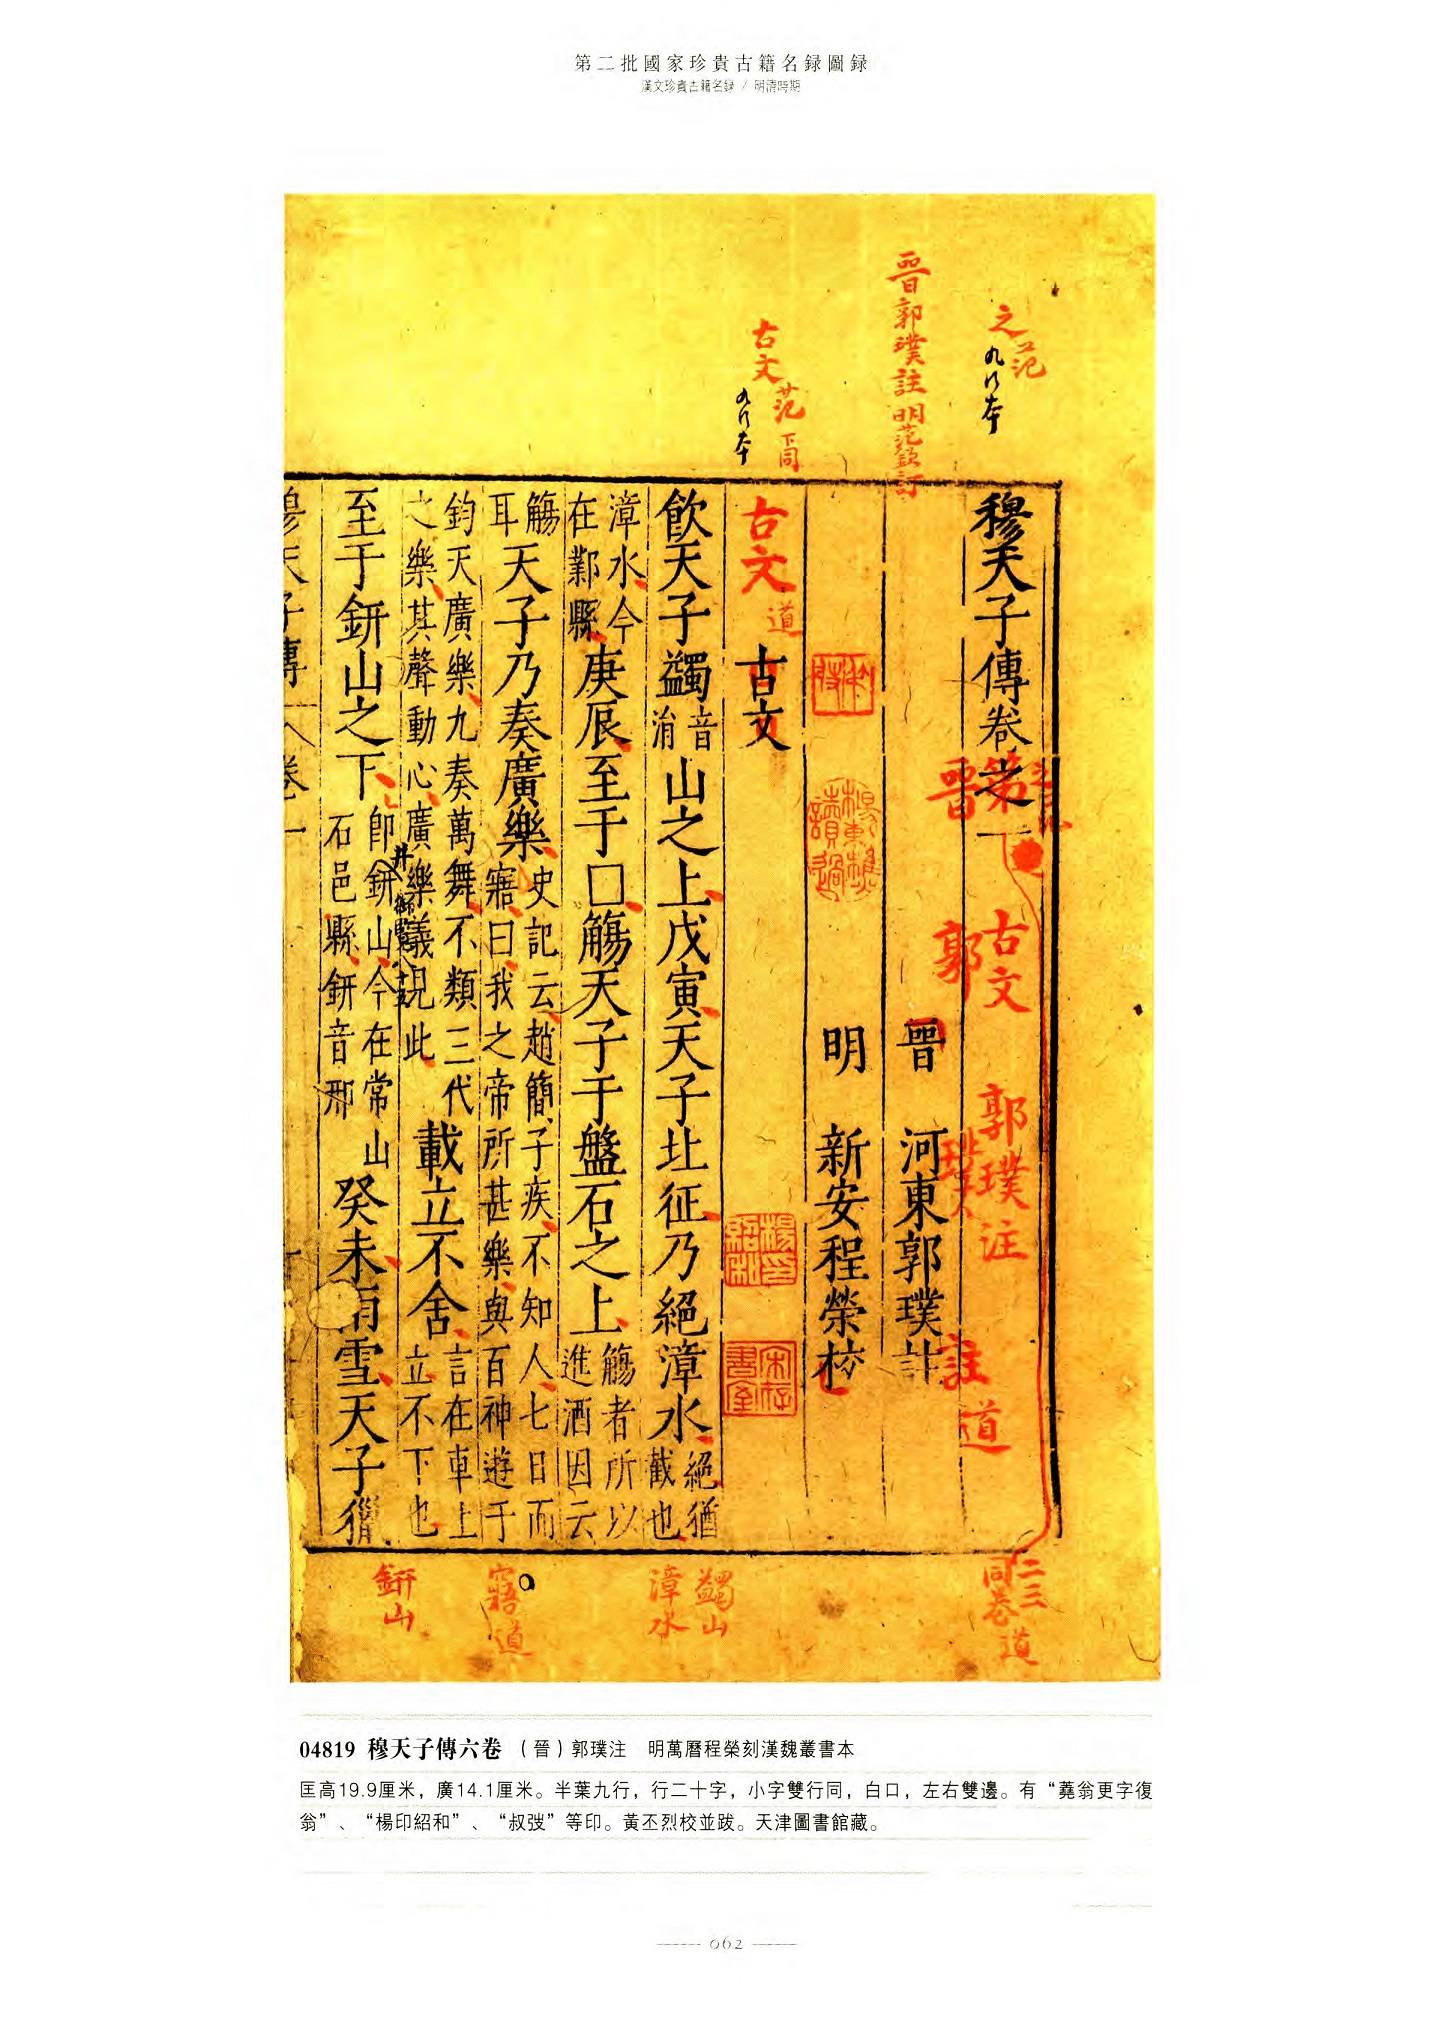 第二批國家珍貴古籍名録圖録
漢文珍貴古籍名録 / 明清時期
之范
九行本
晉郭璞註 明范欽訂
古文范下同
九行本
穆天子傳卷之一
第
古文 郭璞注
晉 郭璞註
道
晉 河東郭璞註
明 新安程榮校
楊東樵讀過
楊印紹和
宋存書室
古文
道
古文
飲天子蠲音涓山之上戊寅天子北征乃絕漳水絕猶截也
漳水今在鄴縣庚辰至于□觴天子于盤石之上觴者所以進酒因云
觴耳天子乃奏廣樂史記云趙簡子疾不知人七日而寤曰我之帝所甚樂與百神遊于
鈞天廣樂九奏萬舞不類三代之樂其聲動心廣樂義見此載立不舍言在車上立不下也
至于鈃山之下卽鈃山今在常山石邑縣鈃音邢癸未雨雪天子獵
穆天子傳 卷一
井
二三同卷道
蠲山
漳水
寤道
鈃山
04819 穆天子傳六卷 （晉）郭璞注 明萬曆程榮刻漢魏叢書本
匡高19.9厘米，廣14.1厘米。半葉九行，行二十字，小字雙行同，白口，左右雙邊。有“蕘翁更字復
翁”、“楊印紹和”、“叔弢”等印。黃丕烈校並跋。天津圖書館藏。
062